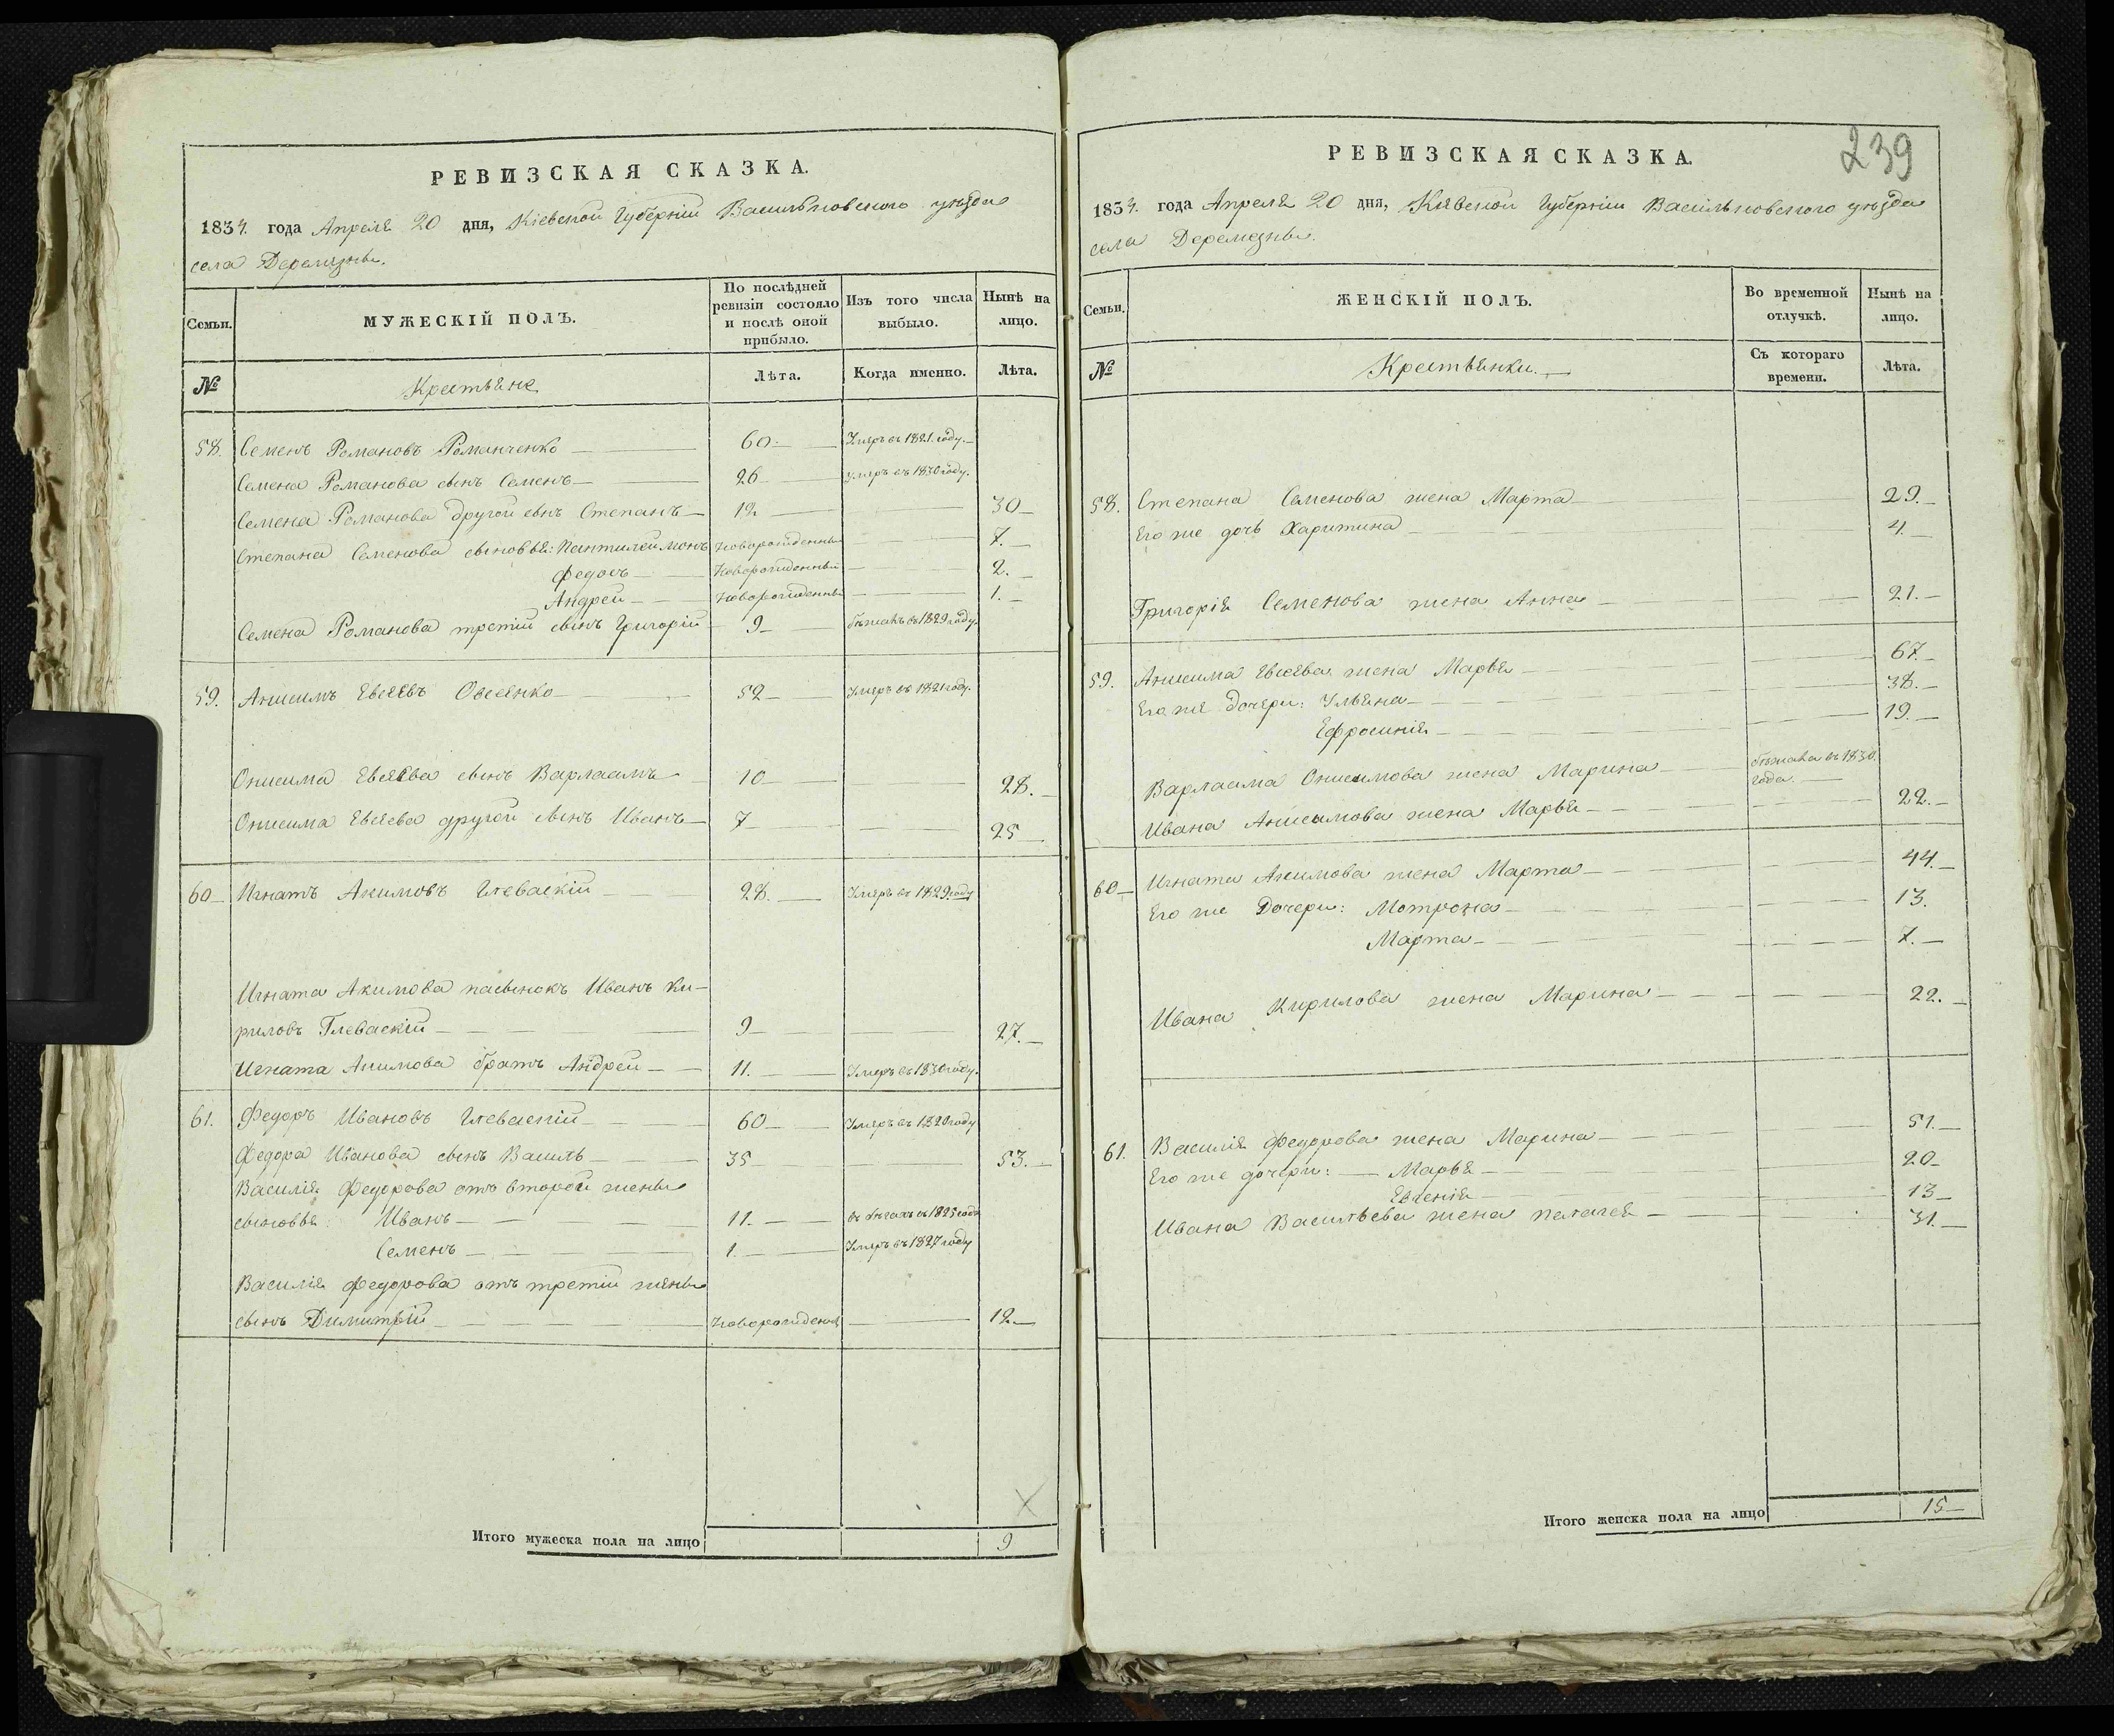 РЕВИЗСКАЯ СКАЗКА.
1834. года Апреля 20 дня, Кіевской Губерніи Васильковского уѣзда
села Деремезны.
Семьи. МУЖЕСКІЙ ПОЛЪ. По послѣдней ревизіи состояло и послѣ оной прибыло. Изъ того числа выбыло. Нынѣ на лицо.
№ Крестьяне Лѣта. Когда именно. Лѣта.
58. Семенъ Романовъ Романченко 60 Умеръ въ 1821. году.
Семена Романова сынъ Семенъ 26 умеръ въ 1830 году.
Семена Романова другой сынъ Степанъ 12 30
Степана Семенова сыновья: Пантилеймонъ Новорожденны 7.
Федосъ Новорожденный 2.
Андрей Новорожденны 1.
Семена Романова третій сынъ Григорій 9 бѣжавъ въ 1829 году.
59. Анисимъ Евсѣевъ Овсѣенко 52 Умеръ въ 1821 году.
Онисима Евсеева сынъ Варлаамъ 10 28.
Онисима Евсеева другой сынъ Иванъ 7 25
60 Игнатъ Акимовъ Глеваскій 28. Умеръ въ 1829. году
Игната Акимова пасынокъ Иванъ Ки-
риловъ Глеваскій 9 27.
Игната Акимова братъ Андрей 11. Умеръ въ 1830 году.
61. Федоръ Ивановъ Глеваскій 60 Умеръ въ 1820 году
Федора Иванова сынъ Василь 35 53.
Василія Федорова отъ второй жены
сыновья: Иванъ 11. въ бѣгахъ съ 1825 года
Семенъ 1. Умеръ въ 1827 году
Василія Федорова отъ третіи жены
сынъ Димитрій Новорожденый 12
Итого мужеска пола на лицо 9
239
РЕВИЗСКАЯ СКАЗКА.
1834. года Апреля 20 дня, Кіевской Губерніи Васильковского уѣзда
села Деремезны.
Семьи. ЖЕНСКІЙ ПОЛЪ. Во временной отлучкѣ. Нынѣ на лицо.
№ Крестьянки. Съ котораго времени. Лѣта.
58. Степана Семенова жена Марта 29.
Его же дочь Харитина 4.
Григорія Семенова жена Анна 21.
59. Анисима Евсеева жена Марья 67.
Его же дочери: Ульяна 38.
Ефросинія 19.
Варлаама Онисимова жена Марина бѣжава въ 1830. года.
Ивана Анисимова жена Марья 22.
60 Игната Акимова жена Марта 44.
Его же Дочери: Мотрона 13.
Марта 7.
Ивана Кирилова жена Марина 22.
61. Василія Федорова жена Марина 51.
Его же дочери: Марья 20
Евгенія 13
Ивана Васильева жена Пелагея 31.
Итого женска пола на лицо 15